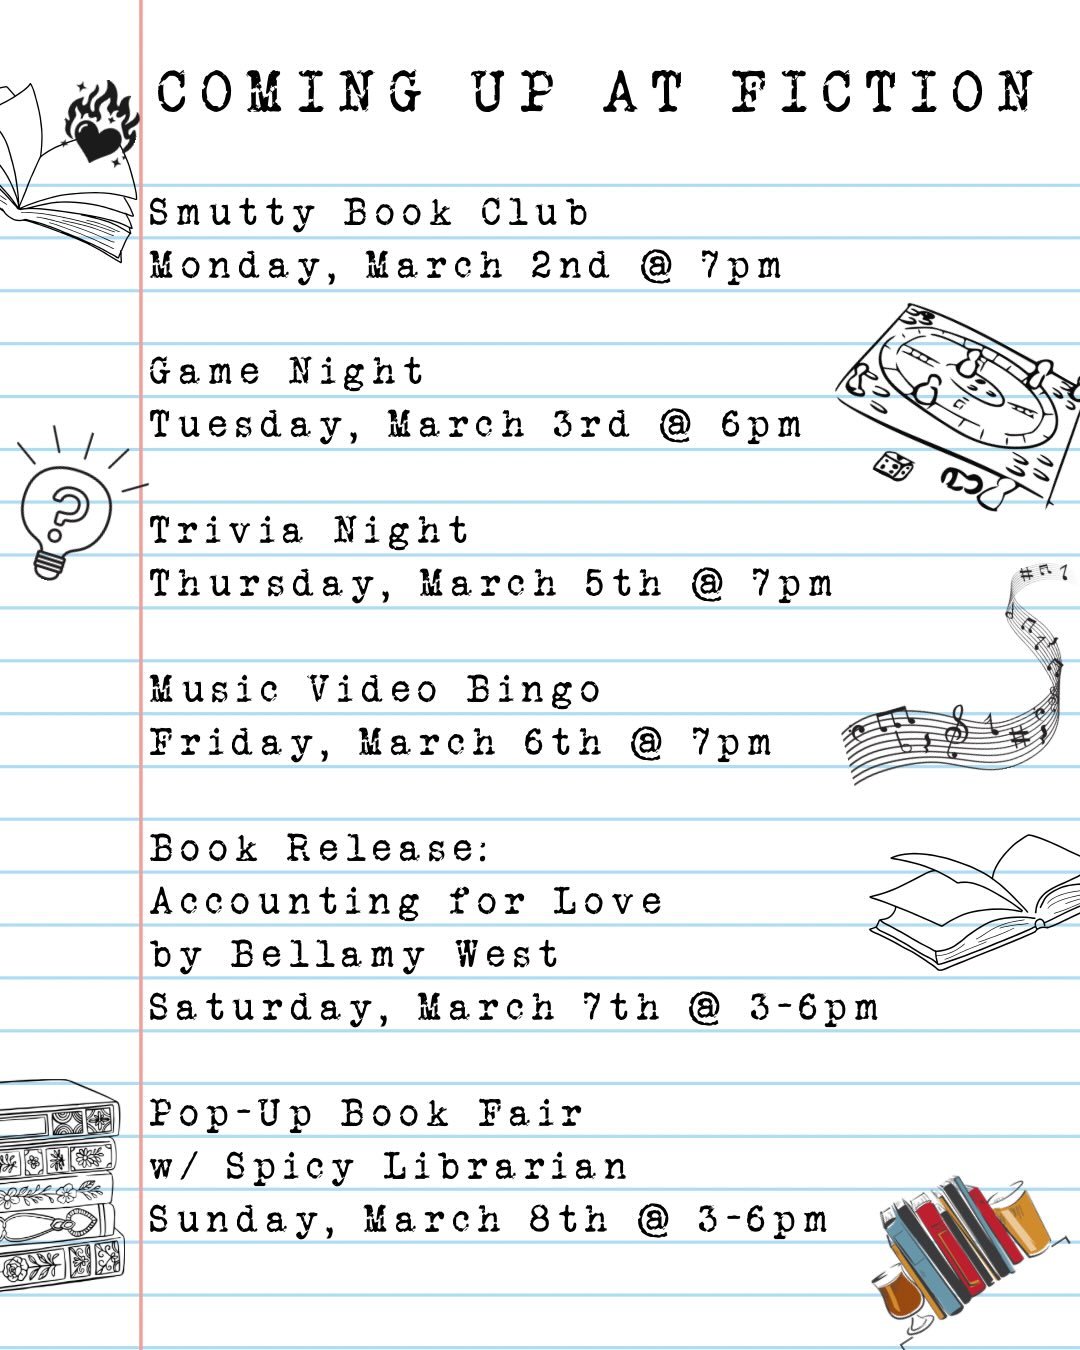 COMING UP AT FICTION
Smutty Book Club
Monday, March 2nd @ 7pm
Game Night
Tuesday, March 3rd @ 6pm
Trivia Night
Thursday, March 5th @ 7pm
Music Video Bingo
Friday, March 6th @ 7pm
Book Release:
Accounting for Love
by Bellamy West
Saturday, March 7th @ 3-6pm
Pop-Up Book Fair
w/ Spicy Librarian
Sunday, March 8th @ 3-6pm